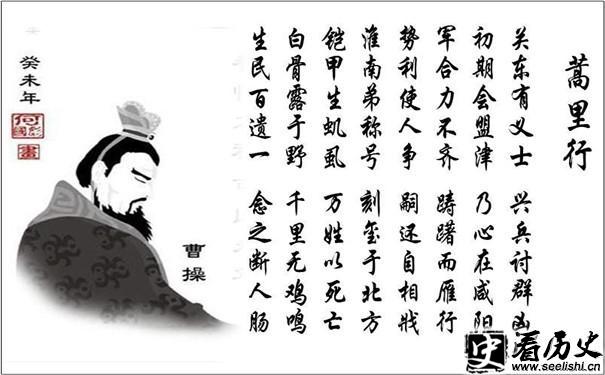 蒿里行
关东有义士 兴兵讨群凶
初期会盟津 乃心在咸阳
军合力不齐 踌躇而雁行
势利使人争 嗣还自相戕
淮南弟称号 刻玺于北方
铠甲生虮虱 万姓以死亡
白骨露于野 千里无鸡鸣
生民百遗一 念之断人肠
曹操
癸未年
畫
史 看历史
www.seelishi.cn